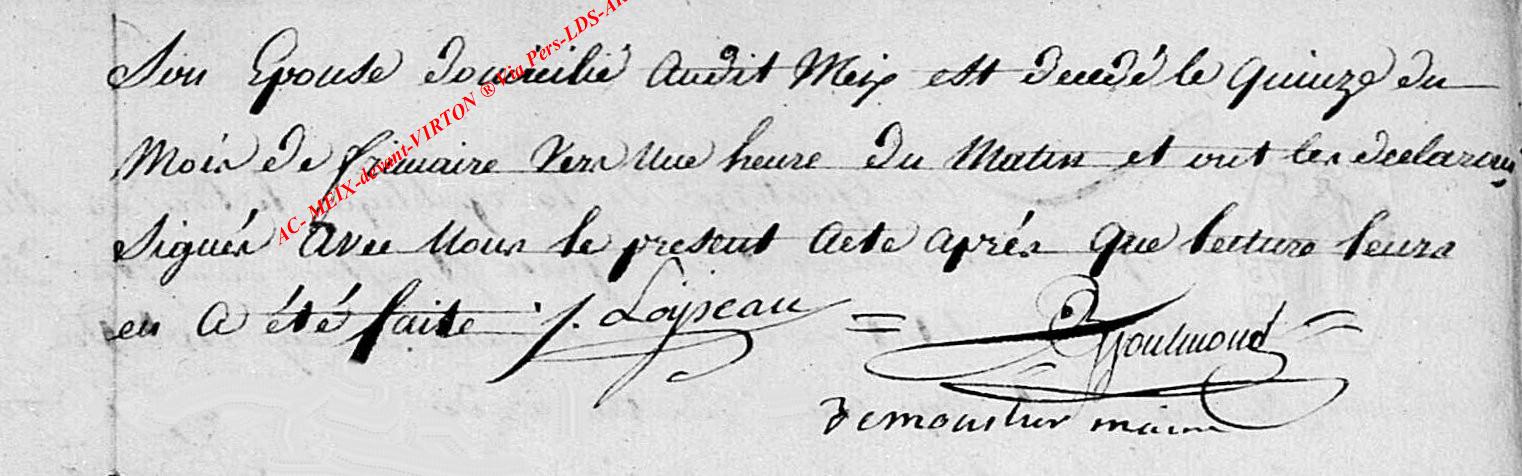 Son Epouse domicilié audit Meix est decedé le quinze du
Mois de frimaire vers une heure du Matin et ont les declarans
Signés avec Nous le present acte aprés que lecture leurs
en a été faite J. Loyseau = Goulmond =
Demoustier maire
AC- MEIX-devant-VIRTON ® Via Pers-LDS-AR